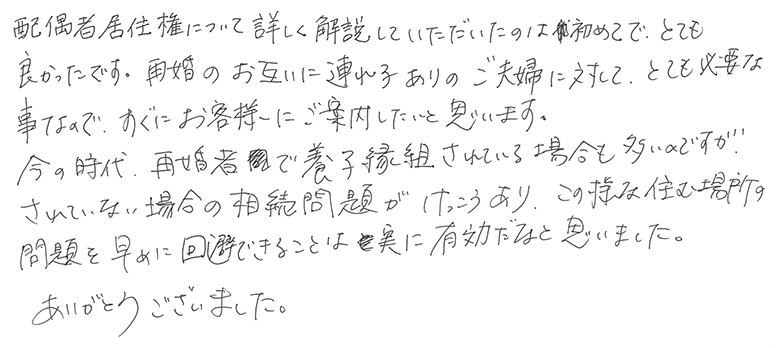 配偶者居住権について詳しく解説していただいたのは初めてで、とても
良かったです。再婚のお互いに連れ子ありのご夫婦に対して、とても必要な
事なので、すぐにお客様にご案内したいと思います。
今の時代、再婚者で養子縁組されている場合も多いのですが、
されていない場合の相続問題がけっこうあり、この様な住む場所の
問題を早めに回避できることは実に有効だなと思いました。
ありがとうございました。